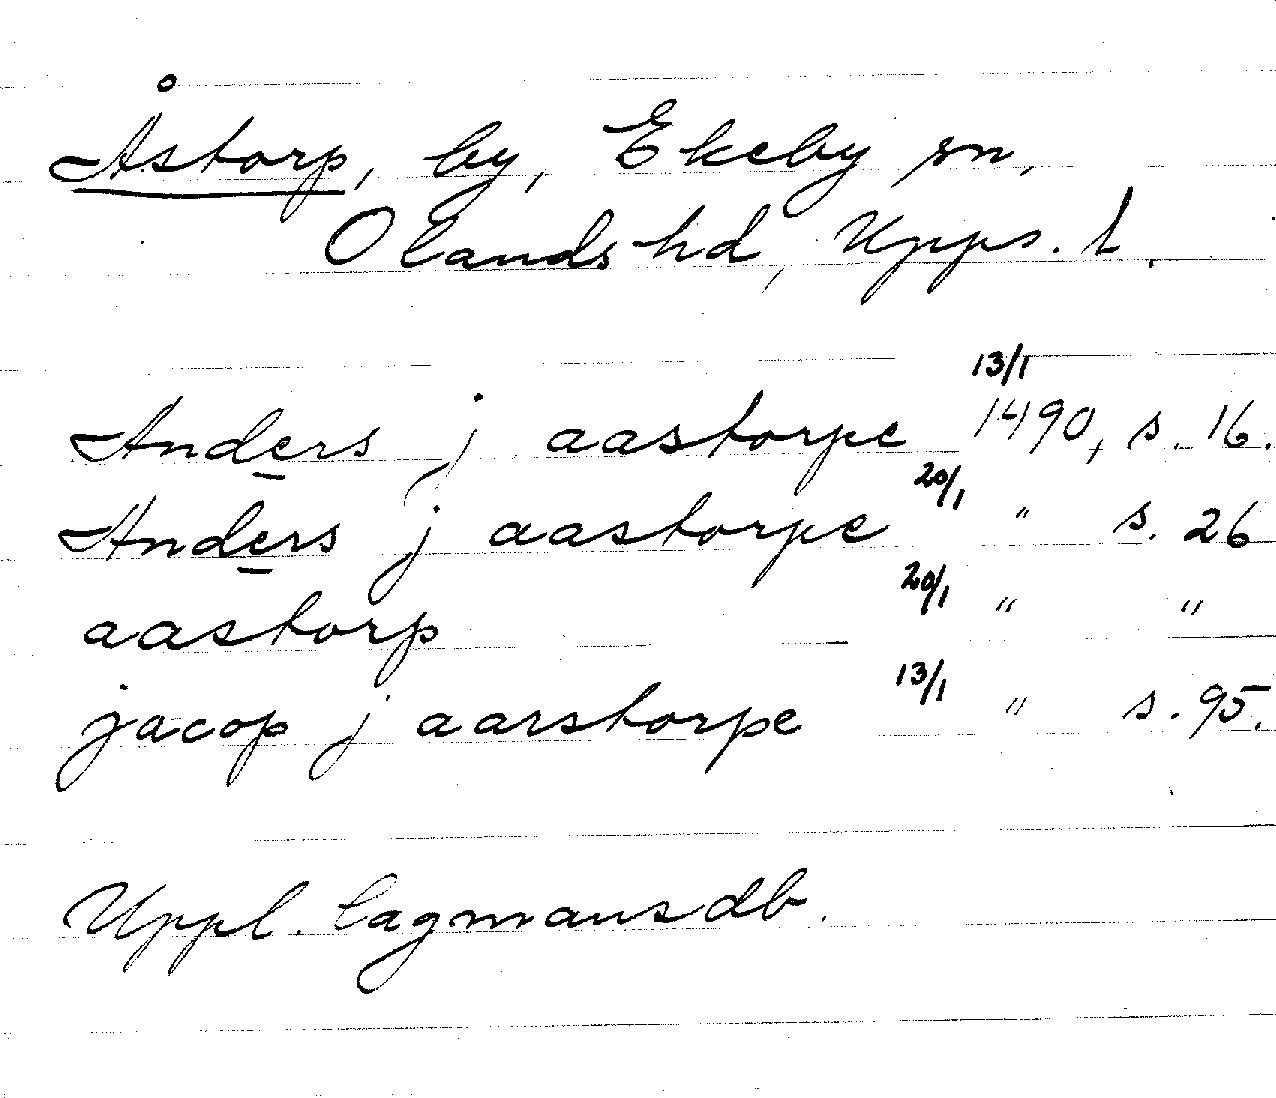 Åstorp, by, Ekeby sn,
Olands hd, Upps. l.
Anders j aastorpe 13/1 1490, s. 16.
Anders j aastorpe 20/1 " s. 26
aastorp 20/1 " "
jacop j aarstorpe 13/1 " s. 95.
Uppl. lagmansdb.